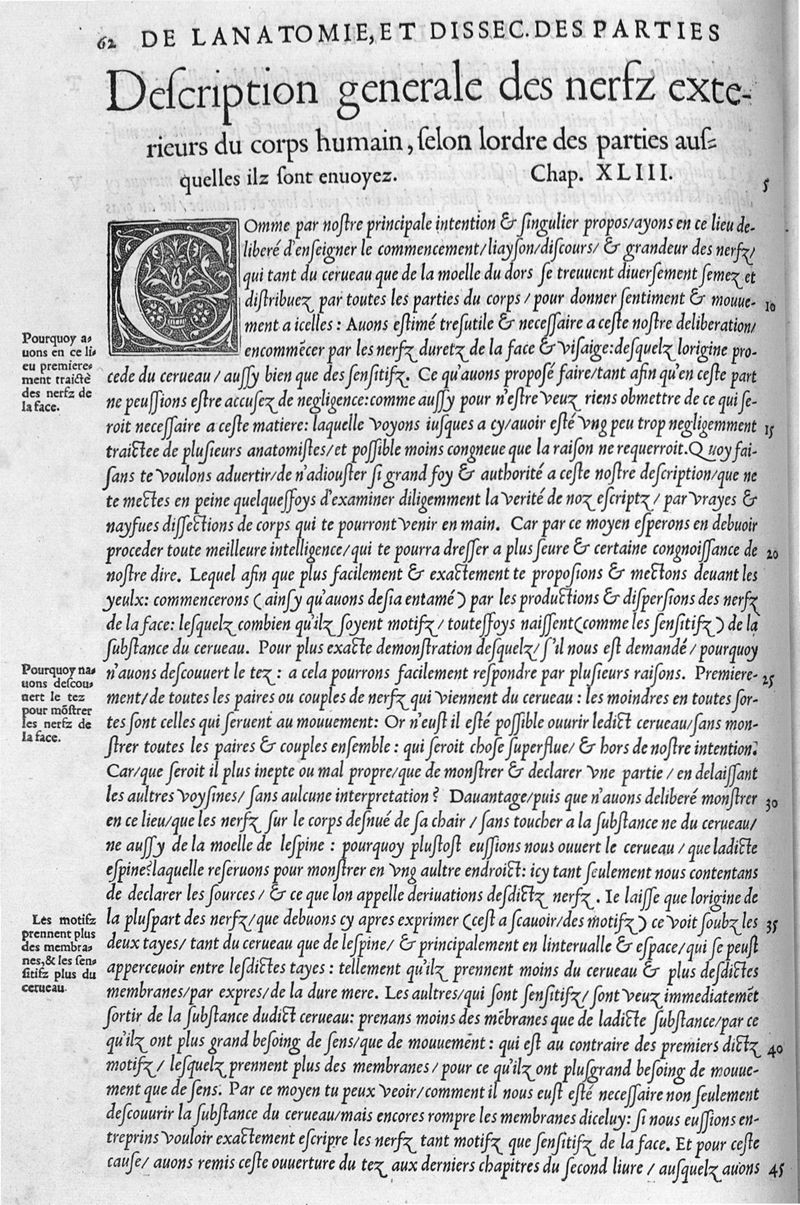 62 DE LANATOMIE, ET DISSEC. DES PARTIES
Deſcription generale des nerfz exte-
rieurs du corps humain, ſelon lordre des parties auſ-
quelles ilz ſont enuoyez. Chap. XLIII.
5
COmme par noſtre principale intention & ſingulier propos/ayons en ce lieu de-
liberé d'enſeigner le commencement/liayſon/diſcours/ & grandeur des nerfz/
qui tant du cerueau que de la moelle du dors ſe treuuent diuerſement ſemez et
diſtribuez par toutes les parties du corps/ pour donner ſentiment & mouue-
10
ment a icelles : Auons eſtimé treſutile & neceſſaire a ceſte noſtre deliberation/
encommẽcer par les nerfz duretz de la face & viſaige: deſquelz lorigine pro-
cede du cerueau / auſſy bien que des ſenſitifz. Ce qu'auons propoſé faire/tant afin qu'en ceſte part
ne peuſſions eſtre accuſez de negligence: comme auſſy pour n'eſtre veuz riens obmettre de ce qui ſe-
roit neceſſaire a ceſte matiere: laquelle voyons iuſques a cy/auoir eſté vng peu trop negligemment
15
traictee de pluſieurs anatomiſtes/et poſſible moins congneue que la raiſon ne requerroit. Quoy fai-
ſans te voulons aduertir/de n'adiouſter ſi grand foy & authorité a ceſte noſtre deſcription/que ne
te mectes en peine quelqueſſoys d'examiner diligemment la verité de noz eſcriptz / par vrayes &
nayfues diſſections de corps qui te pourront venir en main. Car par ce moyen eſperons en debuoir
proceder toute meilleure intelligence/qui te pourra dreſſer a plus ſeure & certaine congnoiſſance de
20
noſtre dire. Lequel afin que plus facilement & exactement te propoſions & mectons deuant les
yeulx: commencerons (ainſy qu'auons deſia entamé) par les productions & diſperſions des nerfz
de la face: leſquelz combien qu'ilz ſoyent motifz / touteſſoys naiſſent (comme les ſenſitifz) de la
ſubſtance du cerueau. Pour plus exacte demonſtration deſquelz/ ſ'il nous eſt demandé / pourquoy
n'auons deſcouuert le tez : a cela pourrons facilement reſpondre par pluſieurs raiſons. Premiere-
25
ment/de toutes les paires ou couples de nerfz qui viennent du cerueau : les moindres en toutes ſor-
tes ſont celles qui ſeruent au mouuement: Or n'euſt il eſté poſſible ouurir ledict cerueau/ſans mon-
ſtrer toutes les paires & couples enſemble : qui ſeroit choſe ſuperflue/ & hors de noſtre intention.
Car/que ſeroit il plus inepte ou mal propre/que de monſtrer & declarer vne partie / en delaiſſant
les aultres voyſines/ ſans aulcune interpretation ? Dauantage/puis que n'auons deliberé monſtrer
30
en ce lieu/que les nerfz ſur le corps deſnué de ſa chair / ſans toucher a la ſubſtance ne du cerueau/
ne auſſy de la moelle de leſpine : pourquoy pluſtoſt euſſions nous ouuert le cerueau / que ladicte
eſpine? laquelle reſeruons pour monſtrer en vng aultre endroict: icy tant ſeulement nous contentans
de declarer les ſources / & ce que lon appelle deriuations deſdictz nerfz . Ie laiſſe que lorigine de
la pluſpart des nerfz/que debuons cy apres exprimer (ceſt a ſcauoir/des motifz) ce voit ſoubz les
35
deux tayes/ tant du cerueau que de leſpine/ & principalement en linterualle & eſpace/qui ſe peuſt
apperceuoir entre leſdictes tayes : tellement qu'ilz prennent moins du cerueau & plus deſdictes
membranes/par expres/de la dure mere. Les aultres/qui ſont ſenſitifz/ ſont veuz immediatemẽt
ſortir de la ſubſtance dudict cerueau: prenans moins des mẽbranes que de ladicte ſubſtance/par ce
qu'ilz ont plus grand beſoing de ſens/que de mouuement : qui eſt au contraire des premiers dictz
40
motifz / leſquelz prennent plus des membranes / pour ce qu'ilz ont pluſgrand beſoing de mouue-
ment que de ſens. Par ce moyen tu peux veoir/comment il nous euſt eſté neceſſaire non ſeulement
deſcouurir la ſubſtance du cerueau/mais encores rompre les membranes diceluy: ſi nous euſſions en-
treprins vouloir exactement eſcripre les nerfz tant motifz que ſenſitifz de la face. Et pour ceſte
cauſe/ auons remis ceſte ouuerture du tez aux derniers chapitres du ſecond liure / auſquelz auons
45
Pourquoy a-
uons en ce li-
eu premiere-
ment traictè
des nerfz de
la face.
Pourquoy na-
uons deſcou-
uert le tez
pour mõſtrer
les nerfz de
la face.
Les motifz
prennent plus
des membra-
nes, & les ſen-
ſitifz plus du
cerueau.